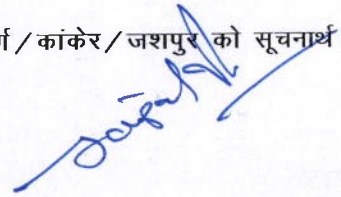 र्ग / कांकेर / जशपुर को सूचनार्थ